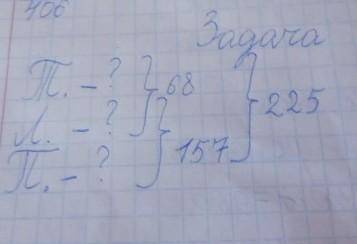 406
Задача
Т. - ? } 68
Л. - ? } 157 } 225
П. - ?